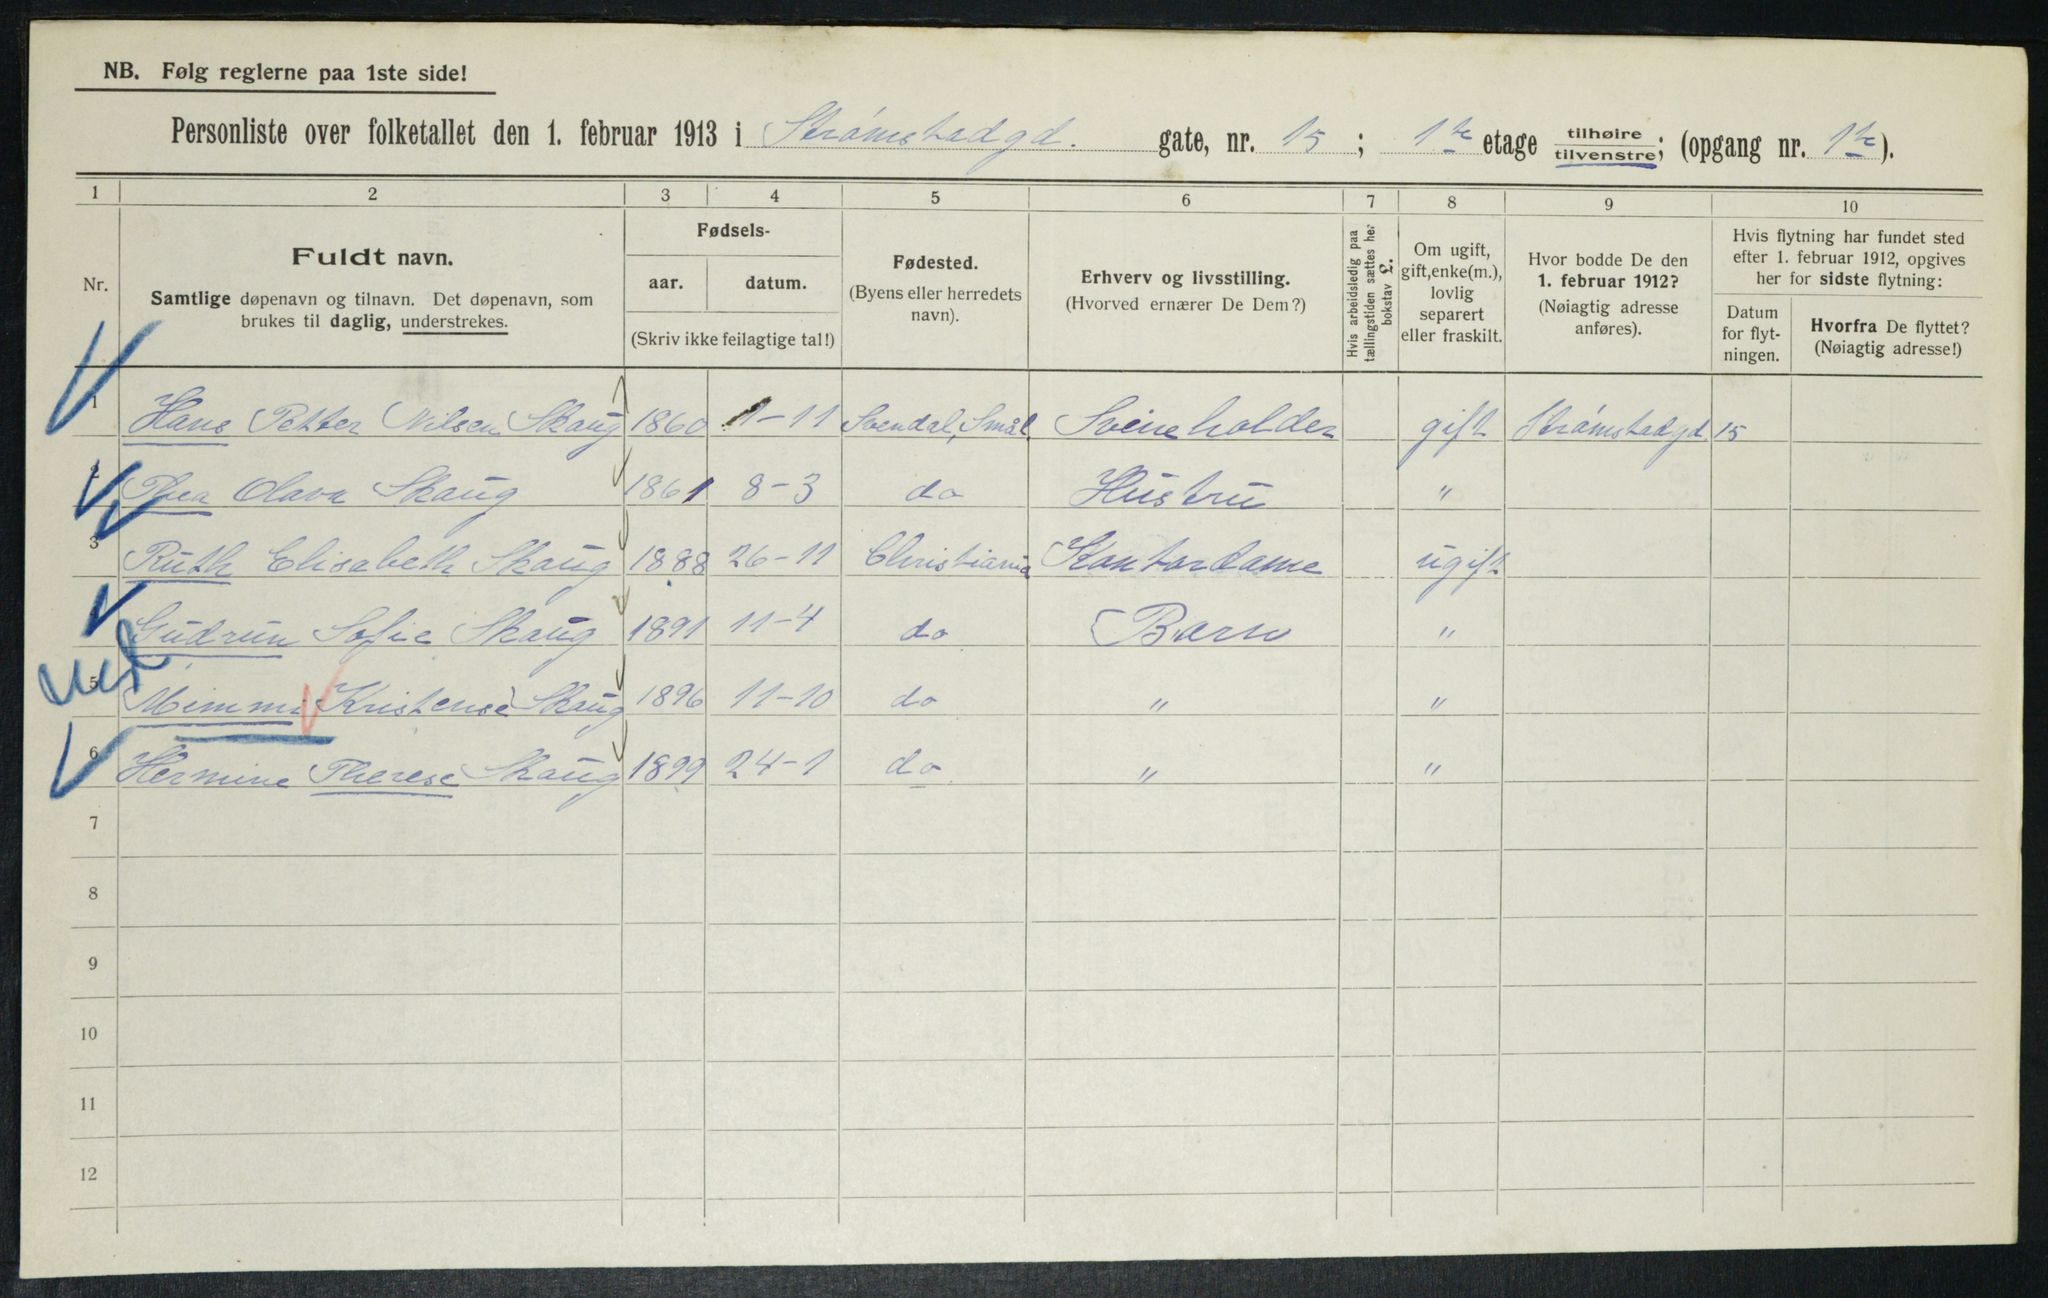 NB. Følg reglerne paa 1ste side!
Personliste over folketallet den 1. februar 1913 i Strømstadgd. gate, nr. 15; 1ste etage tilhøire tilvenstre; (opgang nr. 1ste).
1 2 3 4 5 6 7 8 9 10
Nr.
Fuldt navn.
Samtlige døpenavn og tilnavn. Det døpenavn, som
brukes til daglig, understrekes.
Fødsels-
aar. datum.
(Skriv ikke feilagtige tal!)
Fødested.
(Byens eller herredets
navn).
Erhverv og livsstilling.
(Hvorved ernærer De Dem?)
Hvis arbeidsledig paa
tællingstiden sættes her
bokstav L.
Om ugift,
gift, enke(m.),
lovlig
separert
eller fraskilt.
Hvor bodde De den
1. februar 1912?
(Nøiagtig adresse
anføres).
Hvis flytning har fundet sted
efter 1. februar 1912, opgives
her for sidste flytning:
Datum
for flyt-
ningen.
Hvorfra De flyttet?
(Nøiagtig adresse!)
1 Hans Petter Nilsen Skaug 1860 1-11 Svendal, Smål. Svineholder gift Strømstadgd. 15
2 Thea Olava Skaug 1861 8-3 do Hustru "
3 Ruth Elisabeth Skaug 1888 26-11 Christiania Kontordame ugift
4 Gudrun Sofie Skaug 1891 11-4 do Barn "
5 Mimmi Kristense Skaug 1896 11-10 do " "
6 Hermine Therese Skaug 1899 24-1 do " "
7
8
9
10
11
12